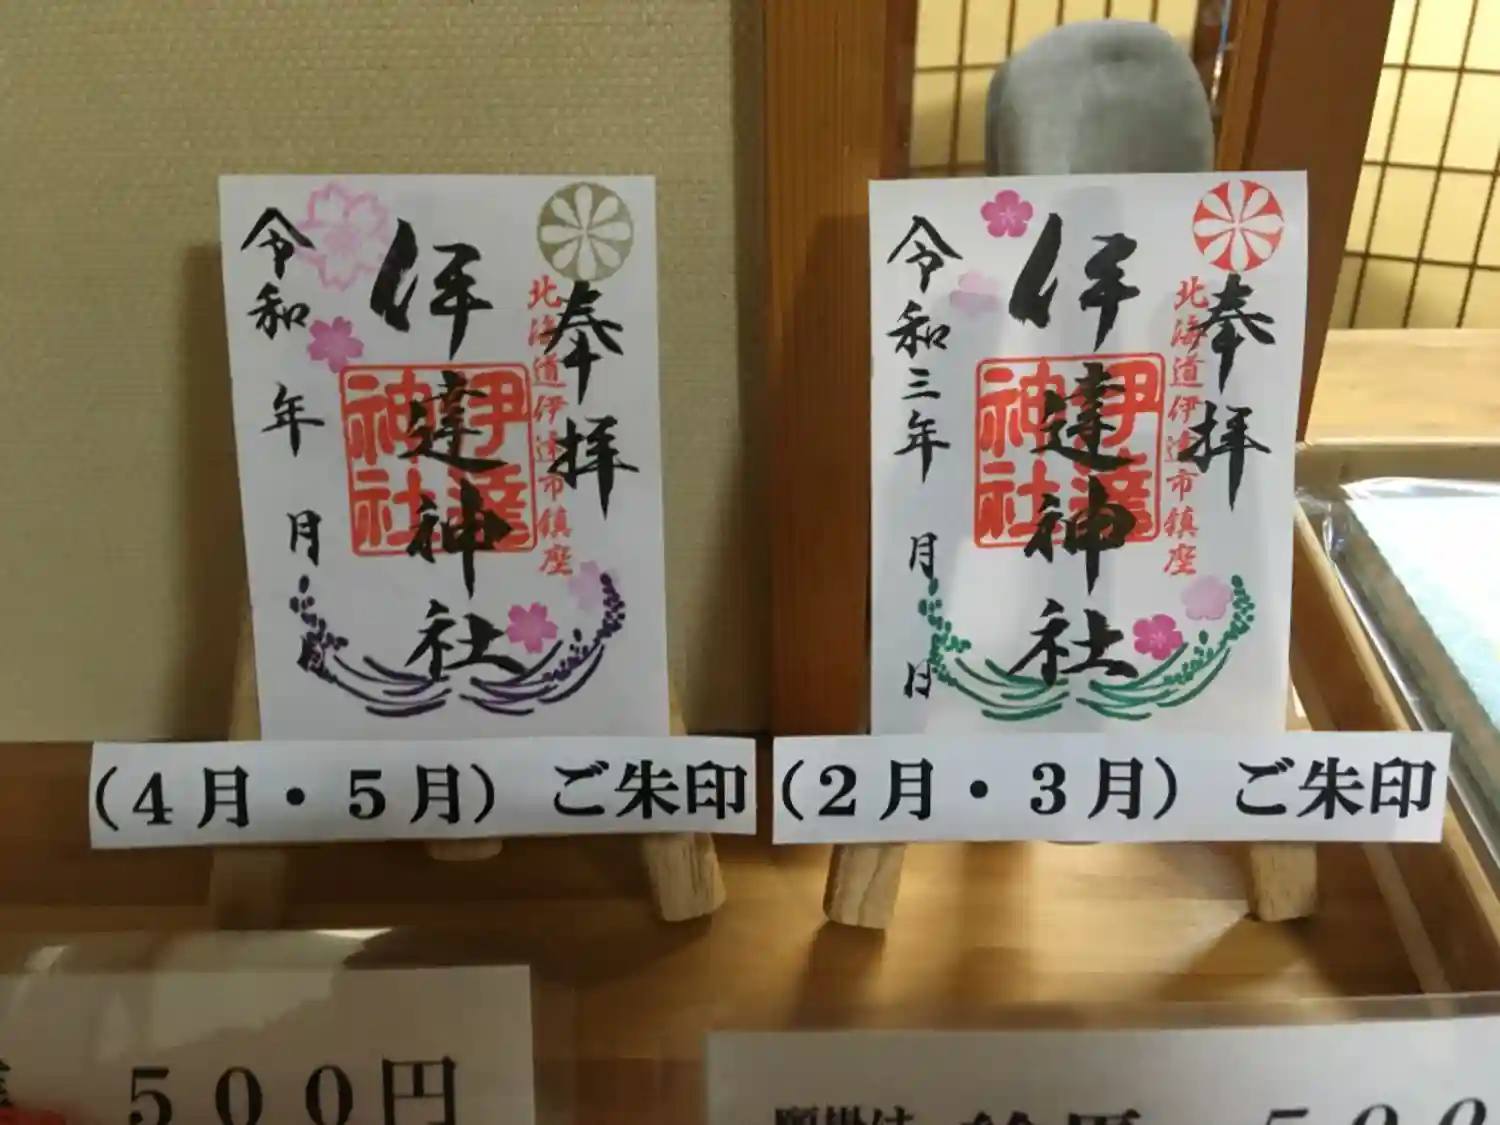 奉拝
北海道伊達市鎮座
伊達神社
伊達神社
令和 年 月
(4月・5月) ご朱印
奉拝
北海道伊達市鎮座
伊達神社
伊達神社
令和三年 月 日
(2月・3月) ご朱印
500円
願掛け
500